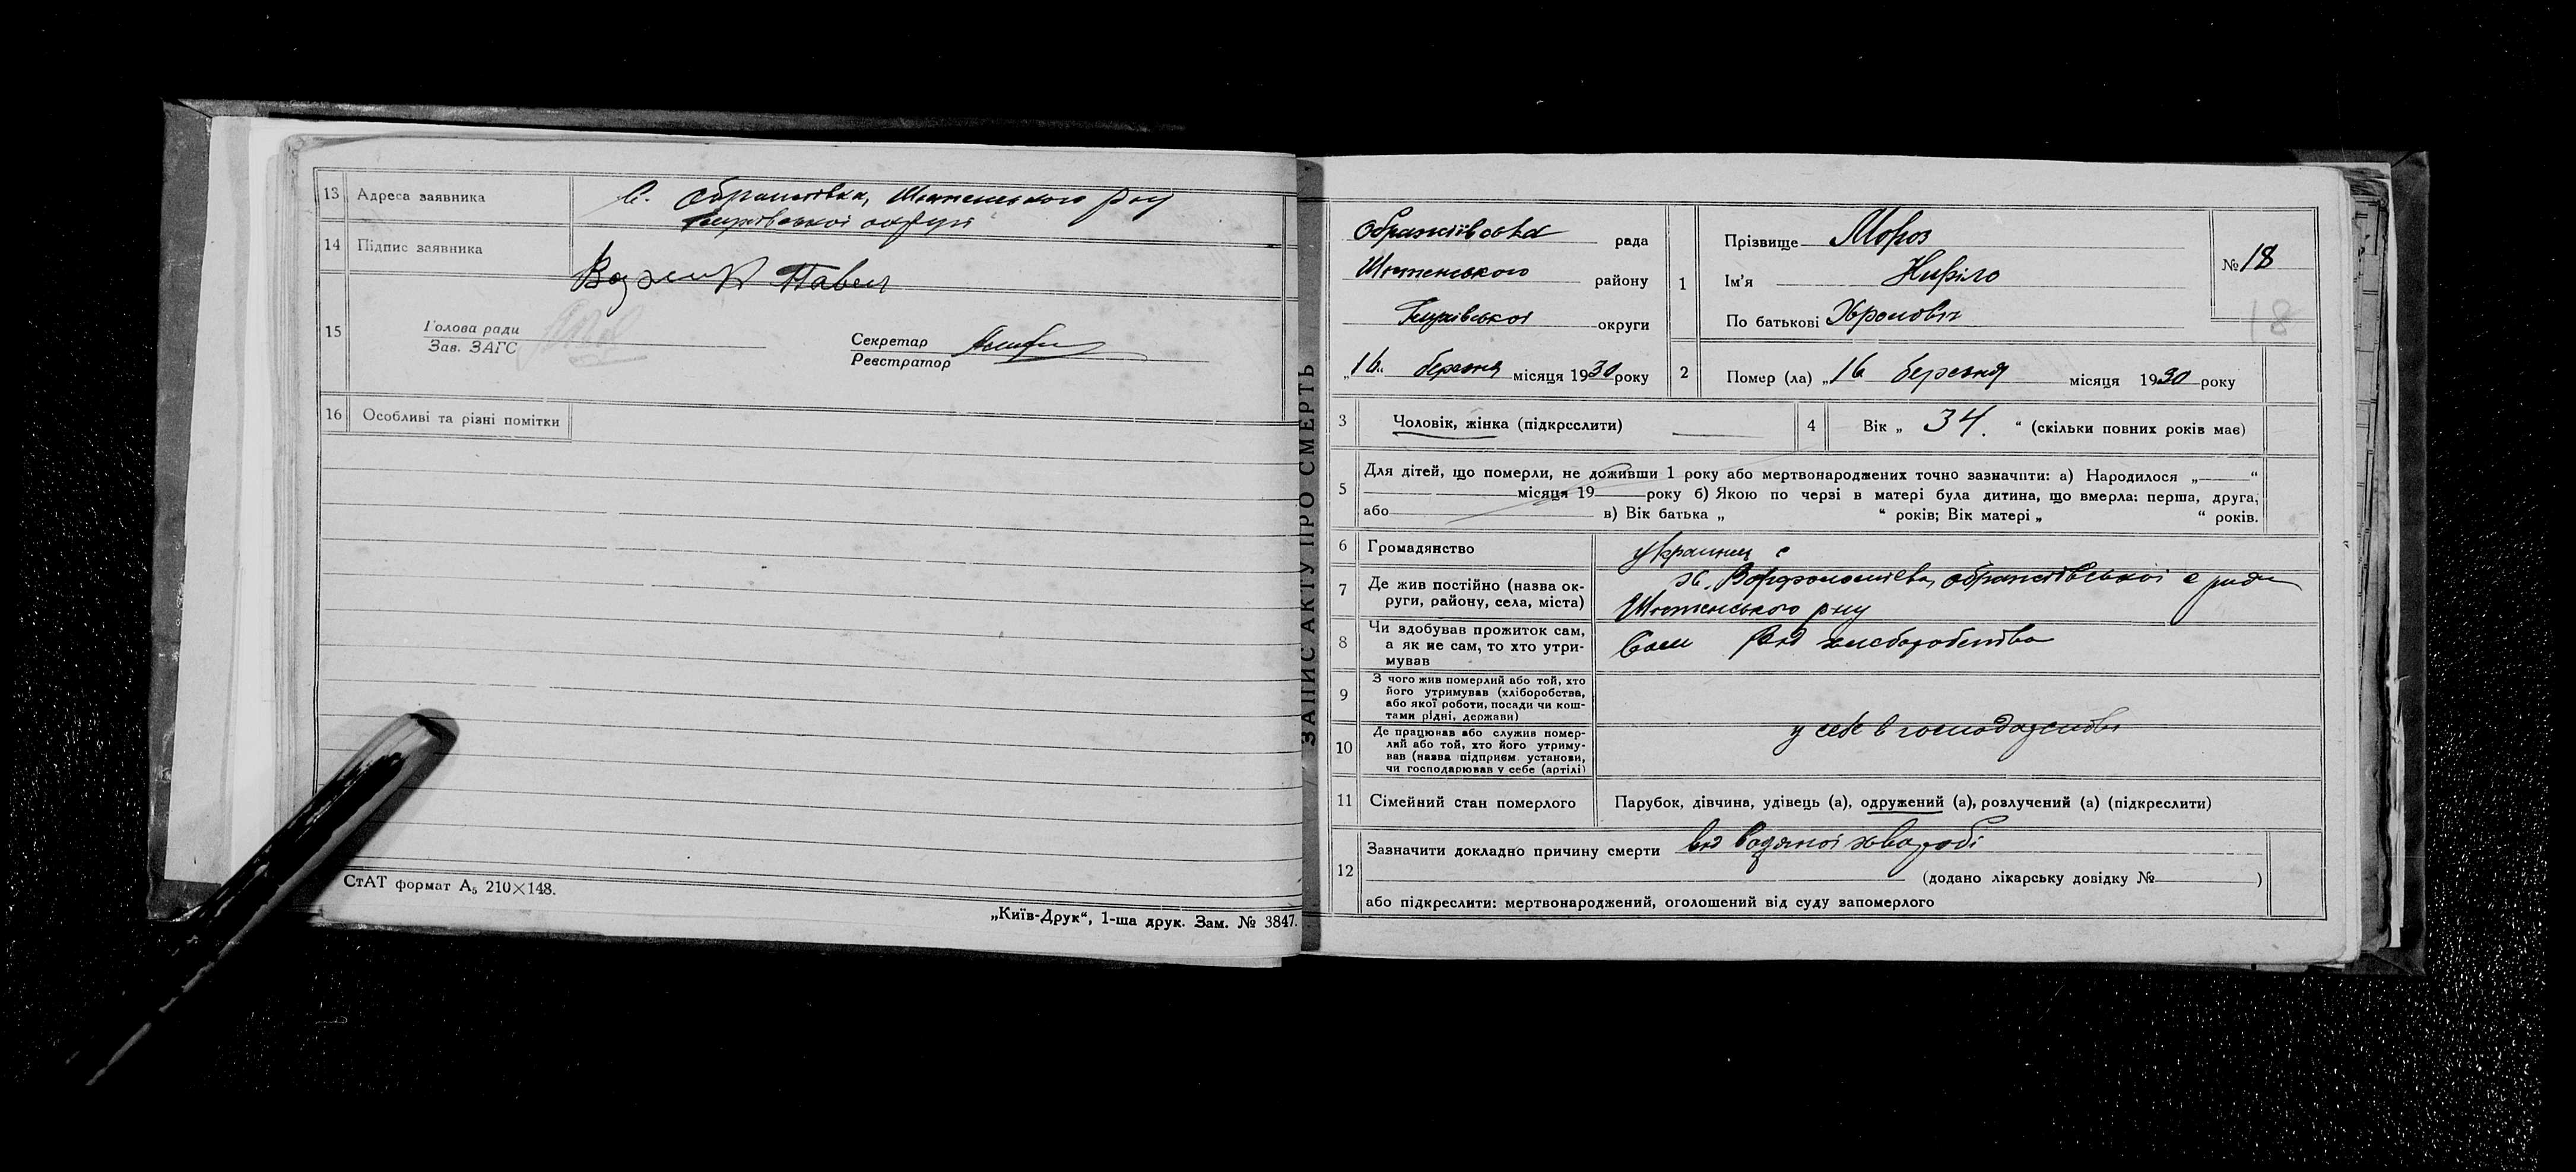 13 Адреса заявника С. Обрантівка, Шютенського р-ну
округи
14 Підпис заявника
Павел
15 Голова ради
Зав. ЗАГС
Секретар
Реєстратор
16 Особливі та різні помітки
СтАТ формат А₅ 210×148.
„Київ-Друк“, 1-ша друк. Зам. № 3847.
ЗАПИС АКТУ ПРО СМЕРТЬ
рада
району
округи
„16“ березня місяця 1930 року
1 Прізвище Мороз
Ім'я Кирило
По батькові
№ 18
18
2 Помер (ла) „16 березня місяця 1930 року
3 Чоловік, жінка (підкреслити)
4 Вік „ 34. “ (скільки повних років має)
5 Для дітей, що померли, не доживши 1 року або мертвонароджених точно зазначити: а) Народилося „ “
місяця 19 року б) Якою по черзі в матері була дитина, що вмерла: перша, друга,
або в) Вік батька „ “ років; Вік матері „ “ років.
6 Громадянство украинец
7 Де жив постійно (назва округи, району, села, міста) х.
р-ну
8 Чи здобував прожиток сам,
а як не сам, то хто утри-
мував Сам від хліборобства
9 З чого жив померлий або той, хто
його утримував (хліборобства,
або якої роботи, посади чи кош-
тами рідні, держави)
10 Де працював або служив помер-
лий або той, хто його утриму-
вав (назва підприєм. установи,
чи господарював у себе (артілі) у себе в господарстві
11 Сімейний стан померлого Парубок, дівчина, удівець (а), одружений (а), розлучений (а) (підкреслити)
12 Зазначити докладно причину смерти від водяної хваробі
(додано лікарську довідку № )
або підкреслити: мертвонароджений, оголошений від суду запомерлого